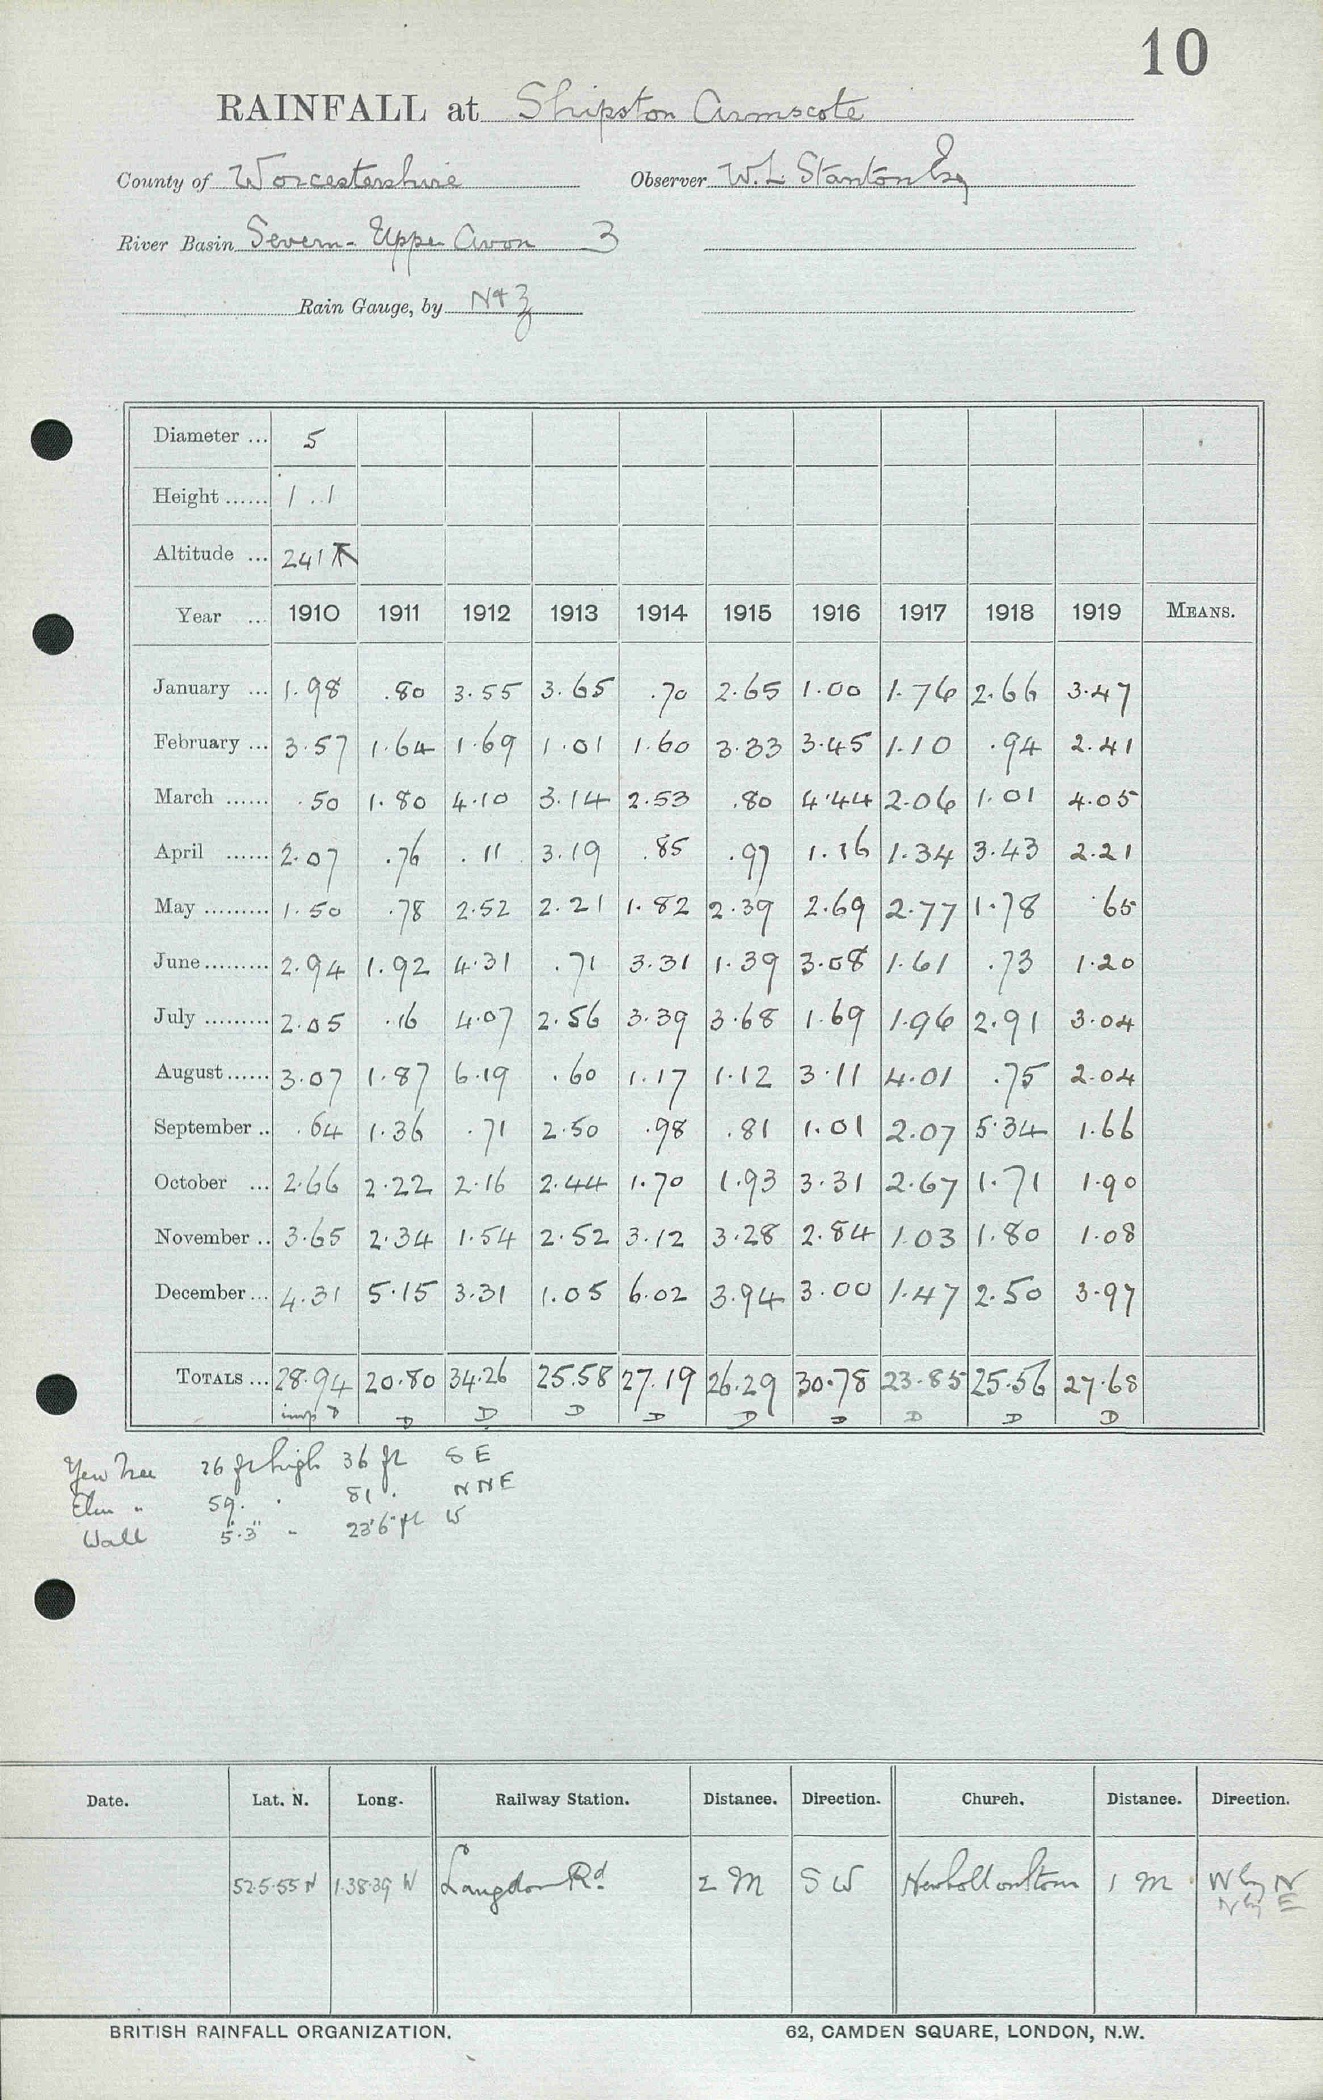 10
RAINFALL at Shipston Armscote
County of Worcestershire Observer W. L. Stanton Esq
River Basin Severn - Upper Avon 3
Rain Gauge, by N & Z
Diameter ... 5
Height ...... 1.1
Altitude ... 241
Year ... 1910 1911 1912 1913 1914 1915 1916 1917 1918 1919 MEANS.
January ... 1.98 .80 3.55 3.65 .70 2.65 1.00 1.76 2.66 3.47
February ... 3.57 1.64 1.69 1.01 1.60 3.33 3.45 1.10 .94 2.41
March ...... .50 1.80 4.10 3.14 2.53 .80 4.44 2.06 1.01 4.05
April ...... 2.07 .76 .11 3.19 .85 .97 1.16 1.34 3.43 2.21
May ......... 1.50 .78 2.52 2.21 1.82 2.39 2.69 2.77 1.78 .65
June ......... 2.94 1.92 4.31 .71 3.31 1.39 3.08 1.61 .73 1.20
July ......... 2.05 .16 4.07 2.56 3.39 3.68 1.69 1.96 2.91 3.04
August ...... 3.07 1.87 6.19 .60 1.17 1.12 3.11 4.01 .75 2.04
September .. .64 1.36 .71 2.50 .98 .81 1.01 2.07 5.34 1.66
October ... 2.66 2.22 2.16 2.44 1.70 1.93 3.31 2.67 1.71 1.90
November .. 3.65 2.34 1.54 2.52 3.12 3.28 2.84 1.03 1.80 1.08
December ... 4.31 5.15 3.31 1.05 6.02 3.94 3.00 1.47 2.50 3.97
TOTALS ... 28.94 20.80 34.26 25.58 27.19 26.29 30.78 23.85 25.56 27.68
imp D D D D D D D D D D
Yew Tree 26 ft high 36 ft S E
Elm " 59 " 81 " N N E
Wall 5'.3" " 23'6" ft W
Date. Lat. N. Long. Railway Station. Distance. Direction. Church. Distance. Direction.
52.5.55 N 1.38.39 W Langdon Rd 2 M S W 1 M W by N
N by E
BRITISH RAINFALL ORGANIZATION. 62, CAMDEN SQUARE, LONDON, N.W.